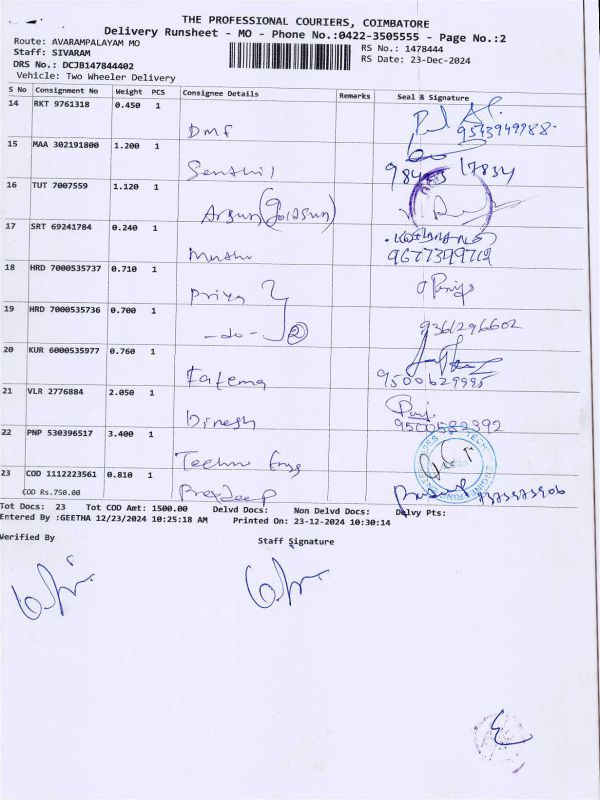 THE PROFESSIONAL COURIERS, COIMBATORE
Delivery Runsheet - MO - Phone No.:0422-3505555 - Page No.:2
Route: AVARAMPALAYAM MO
RS No.: 1478444
Staff: SIVARAM
RS Date: 23-Dec-2024
DRS No.: DCJB147844402
Vehicle: Two Wheeler Delivery
S No Consignment No Weight PCS Consignee Details Remarks Seal & Signature
14 RKT 9761318 0.450 1
Dmf
9543949988.
15 MAA 302191800 1.200 1
Senthil
17834
16 TUT 7007559 1.120 1
Arjun
17 SRT 69241784 0.240 1
Muthu
18 HRD 7000535737 0.710 1
Priya
Priya
19 HRD 7000535736 0.700 1
-do- 2
9361296602
20 KUR 6000535977 0.760 1
Fatema
9500629995
21 VLR 2776884 2.050 1
Dinesh
9500582392
22 PNP 530396517 3.400 1
Techno Engg
23 COD 1112223561 0.810 1
COD Rs.750.00
Pradeep
Tot Docs: 23 Tot COD Amt: 1500.00 Delvd Docs: Non Delvd Docs: Delvy Pts:
Entered By :GEETHA 12/23/2024 10:25:18 AM Printed On: 23-12-2024 10:30:14
Verified By
Staff Signature